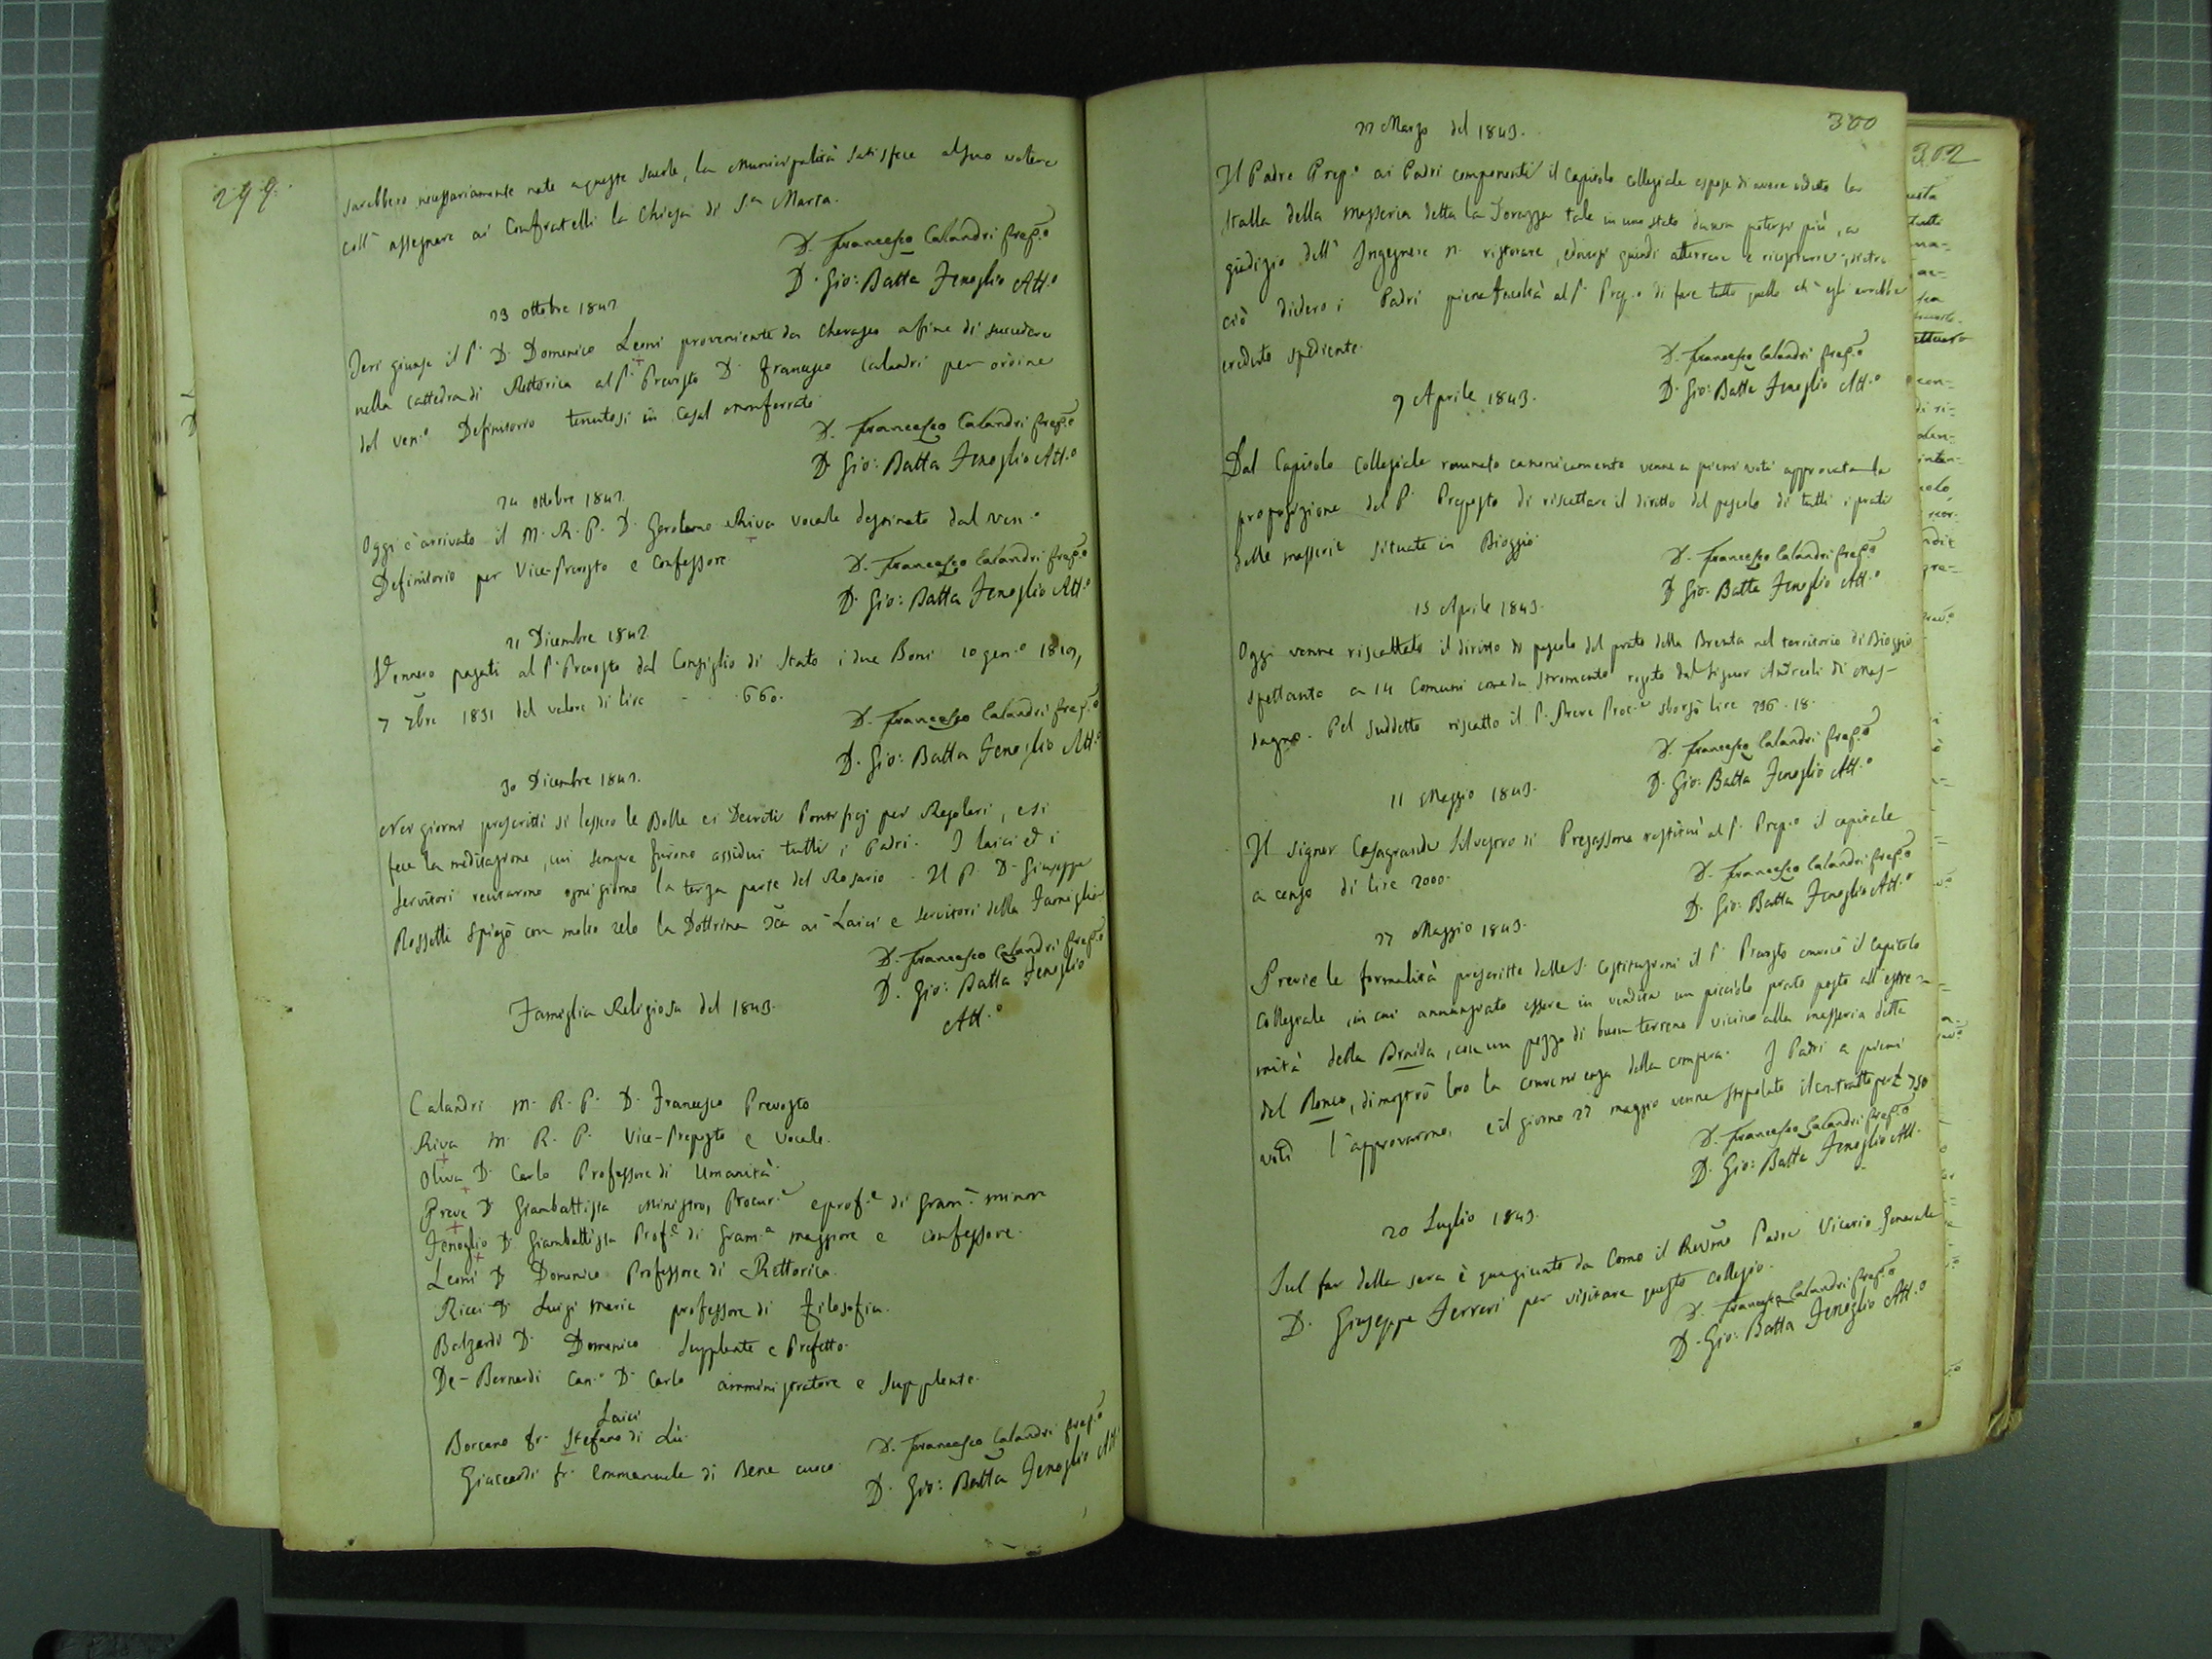 299.
sarebbero necessariamente nate a queste scuole, la Municipalità satisfece al suo volere
coll' assegnare ai Confratelli la Chiesa di S.a Marta.
D. Francesco Calandri Prep.o
D. Gio: Batta Fenoglio Att.o
23 Ottobre 1842
Jeri giunse il P. D. Domenico Leoni proveniente da Cherasco affine di succedere
nella cattedra di Rettorica al P. Prevosto D. Francesco Calandri per ordine
del ven.o Definitorio tenutosi in Casal Monferrato.
D. Francesco Calandri Prep.o
D. Gio: Batta Fenoglio Att.o
24 Ottobre 1842.
Oggi è arrivato il M. R. P. D. Gerolamo Riva vocale destinato dal ven.o
Definitorio per Vice-Prevosto e Confessore.
D. Francesco Calandri Prep.o
D. Gio: Batta Fenoglio Att.o
21 Dicembre 1842.
Vennero pagati al P. Prevosto dal Consiglio di Stato i due Boni 10 gen.o
7 1831 del valore di lire - - 660.
D. Francesco Calandri Prep.o
D. Gio: Batta Fenoglio Att.o
30 Dicembre 1842.
Nei giorni prescritti si lessero le Bolle e i Decreti Pontificj per Regolari, e si
fece la meditazione, cui sempre furono assidui tutti i Padri. I laici ed i
servitori recitarono ogni giorno la terza parte del Rosario. Il P. D. Giuseppe
Rossetti spiegò con molto zelo la Dottrina ai Laici e servitori della Famiglia
D. Francesco Calandri Prep.o
D. Gio: Batta Fenoglio
Att.o
Famiglia Religiosa del 1843.
Calandri M. R. P. D. Francesco Prevosto
Riva M. R. P. Vice-Preposto e vocale.
Oliva D. Carlo Professore di Umanità
Preve D. Giambattista Ministro, Procur.e e prof.e di Gram.a minore
Fenoglio D. Giambattista Prof.e di Gram.a maggiore e confessore.
Leoni D. Domenico Professore di Rettorica.
Ricci D. Luigi Maria professore di Filosofia.
Domenico Supplente e Prefetto.
De-Bernardi Can.o D. Carlo amministratore e supplente.
Laici
Borcano fr. Stefano di Lù.
Giaccardi fr. Emmanuele di Bene cuoco.
D. Francesco Calandri Prep.o
D. Gio: Batta Fenoglio Att.
300
22 Marzo del 1843.
Il Padre Prep.o ai Padri componenti il capitolo collegiale espose di avere veduto la
stalla della masseria detta la Torazza tale in uno stato da non potersi più, a
giudizio dell' Ingegnere ristorare, e doversi quindi atterrare e ricostruire; dietro
ciò diedero i Padri piena facoltà al P. Prep.o di fare tutto quello ch' egli avrebbe
creduto spediente.
D. Francesco Calandri Prep.o
D. Gio: Batta Fenoglio Att.o
9 Aprile 1843.
Dal Capitolo Collegiale raunato canonicamente venne a pieni voti approvata la
proposizione del P. Preposto di riscattare il diritto del pascolo di tutti i prati
delle masserie situate in Bioggio.
D. Francesco Calandri Prep.o
D. Gio: Batta Fenoglio Att.o
15 Aprile 1843.
Oggi venne riscattato il diritto di pascolo del prato della Brenta nel territorio di Bioggio
spettante a 14 Comuni come da stromento rogato dal Signor Andreoli di
Pel suddetto riscatto il P. Preve Proc.e sborsò lire 296. 18.
D. Francesco Calandri Prep.o
D. Gio: Batta Fenoglio Att.o
11 Maggio 1843.
Il signor Casagrande Silvestro di Pregassona restituì al P. Prep.o il capitale
a censo di lire 2000.
D. Francesco Calandri Prep.o
D. Gio: Batta Fenoglio Att.o
27 Maggio 1843.
Previe le formalità prescritte dalle S. Costituzioni il P. Prevosto convocò il Capitolo
Collegiale, in cui annunziato essere in vendita un picciolo prato posto all' estre-
mità della Braida, con un pezzo di buon terreno vicino alla masseria detta
del Ronco, dimostrò loro la convenienza della compera. I Padri a pieni
voti l' approvarono, e il giorno 27 maggio venne stipolato il contratto per £ 750
D. Francesco Calandri Prep.o
D. Gio: Batta Fenoglio Att.
20 Luglio 1843.
Sul far della sera è quagiunto da Como il Revmo Padre Vicario Generale
D. Giuseppe Ferreri per visitare questo collegio.
D. Francesco Calandri Prep.o
D. Gio: Batta Fenoglio Att.o
302